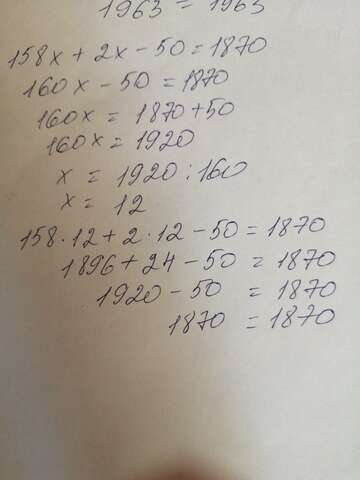 1963 = 1963
158x + 2x - 50 = 1870
160x - 50 = 1870
160x = 1870 + 50
160x = 1920
x = 1920 : 160
x = 12
158 · 12 + 2 · 12 - 50 = 1870
1896 + 24 - 50 = 1870
1920 - 50 = 1870
1870 = 1870